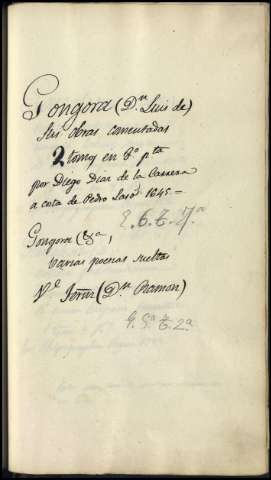 Gongora (Dn. Luis de)
Sus obras comentadas
2 tomos en 8º pta
por Diego Diaz de la Carrera
a costa de Pedro Laso. 1645.=
E. 6. t. 7.a
Gongora (&a,
varias poesias sueltas
Ve. Fernz (Dn. Ramon)
t. 2.a